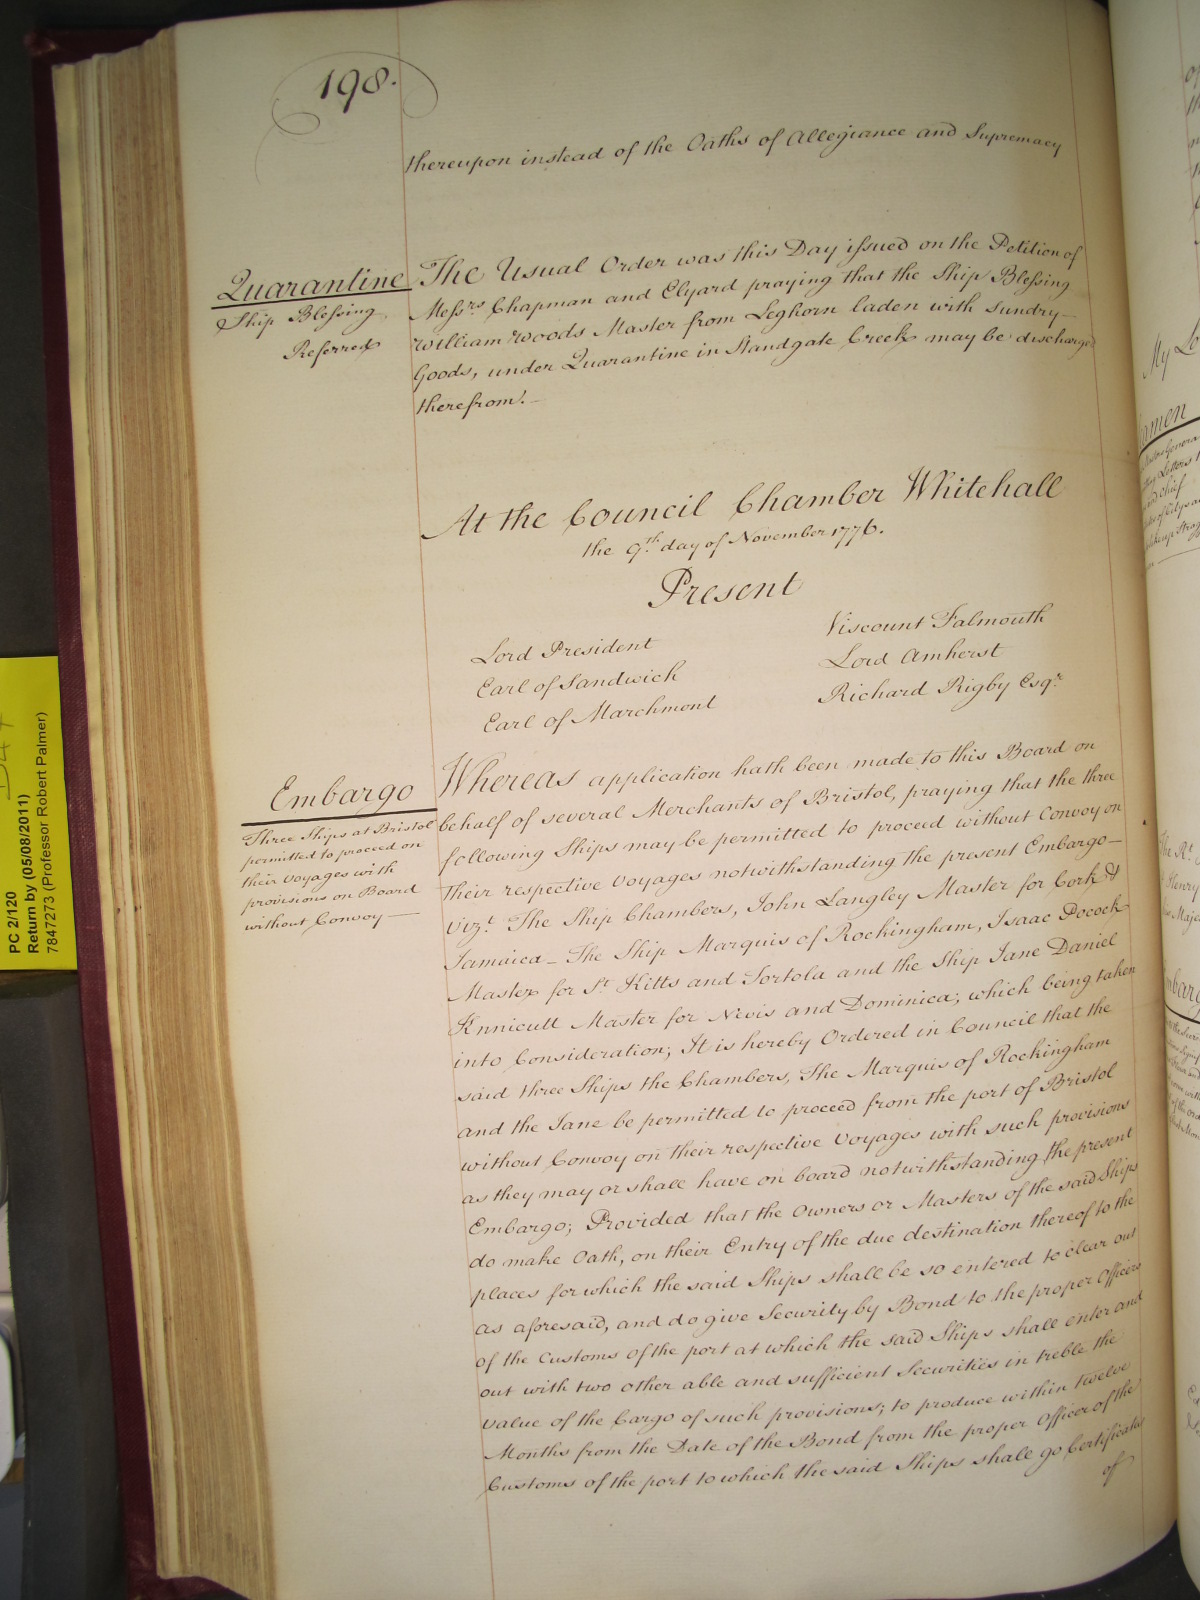 198.
thereupon instead of the Oaths of Allegiance and Supremacy
Quarantine
Ship Blessing
Referred
The Usual Order was this Day issued on the Petition of
Messrs. Chapman and Elyard praying that the Ship Blessing
William Woods Master from Leghorn laden with sundry—
Goods, under Quarantine in Standgate Creek may be discharged
therefrom.—
At the Council Chamber Whitehall
the 9th. day of November 1776.
Present
Lord President
Earl of Sandwich
Earl of Marchmont
Viscount Falmouth
Lord Amherst
Richard Rigby Esqr.
Embargo
Three Ships at Bristol
permitted to proceed on
their Voyages with
provisions on Board
without Convoy—
Whereas application hath been made to this Board on
behalf of several Merchants of Bristol, praying that the three
following Ships may be permitted to proceed without Convoy on
their respective Voyages notwithstanding the present Embargo—
Vizt. The Ship Chambers, John Langley Master for Cork &
Jamaica— The Ship Marquis of Rockingham, Isaac Pocock
Master for St Kitts and Tortola and the Ship Jane Daniel
Knnicutt Master for Nevis and Dominica; which being taken
into Consideration; It is hereby Ordered in Council that the
said three Ships the Chambers, The Marquis of Rockingham
and the Jane be permitted to proceed from the port of Bristol
without Convoy on their respective Voyages with such provisions
as they may or shall have on board notwithstanding the present
Embargo; Provided that the Owners or Masters of the said Ships
do make Oath, on their Entry of the due destination thereof to the
places for which the said Ships shall be so entered to clear out
as aforesaid, and do give Security by Bond to the proper Officers
of the Customs of the port at which the said Ships shall enter and
out with two other able and sufficient Securities in treble the
value of the Cargo of such provisions; to produce within twelve
Months from the Date of the Bond from the proper Officer of the
Customs of the port to which the said Ships shall go Certificates
of
PC 2/120
Return by (05/08/2011)
7847273 (Professor Robert Palmer)
My Lo